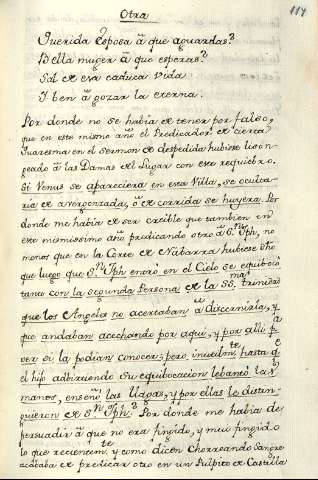 Otra
117
Querida Esposa â que aguardas?
Bella muger â que esperas?
Sal de esa caduca vida
I ben â gozar la eterna.
Por donde no se habia de tener por falso,
que en este mismo año el Predicador de cierta
Quaresma en el sermon de despedida hubiese lison
geado â las Damas del Lugar con este requiebro.
Si Venus se apareciera en esta Villa, se oculta-
ria de avergonzada, ô de corrida se huyera. Por
donde me habia de ser creible que tambien en
este mismissimo año predicando otro â S.n Jph, no
menos que en la Corte de Nabarra hubiese dho
que luego que S.n Jph entro en el Cielo se equiboco
tanto con la segunda Persona de la SS.ma trinidad
que los Angeles no acertaban â discernirla, y
que andaban acechando por aqui, y por alli â
ver si la podian conocer; pero inutilm.te hasta q.e
el hijo advirtiendo su equibocacion lebantó las
manos, enseñó las llagas, y por ellas le distin-
guieron de S.n Jph? Por donde me habia de
persuadir â que no era fingido, y mui fingido
lo que recientem.te y como dicen chorreando Sangre
acababa de predicar otro en un Pulpito de Castilla